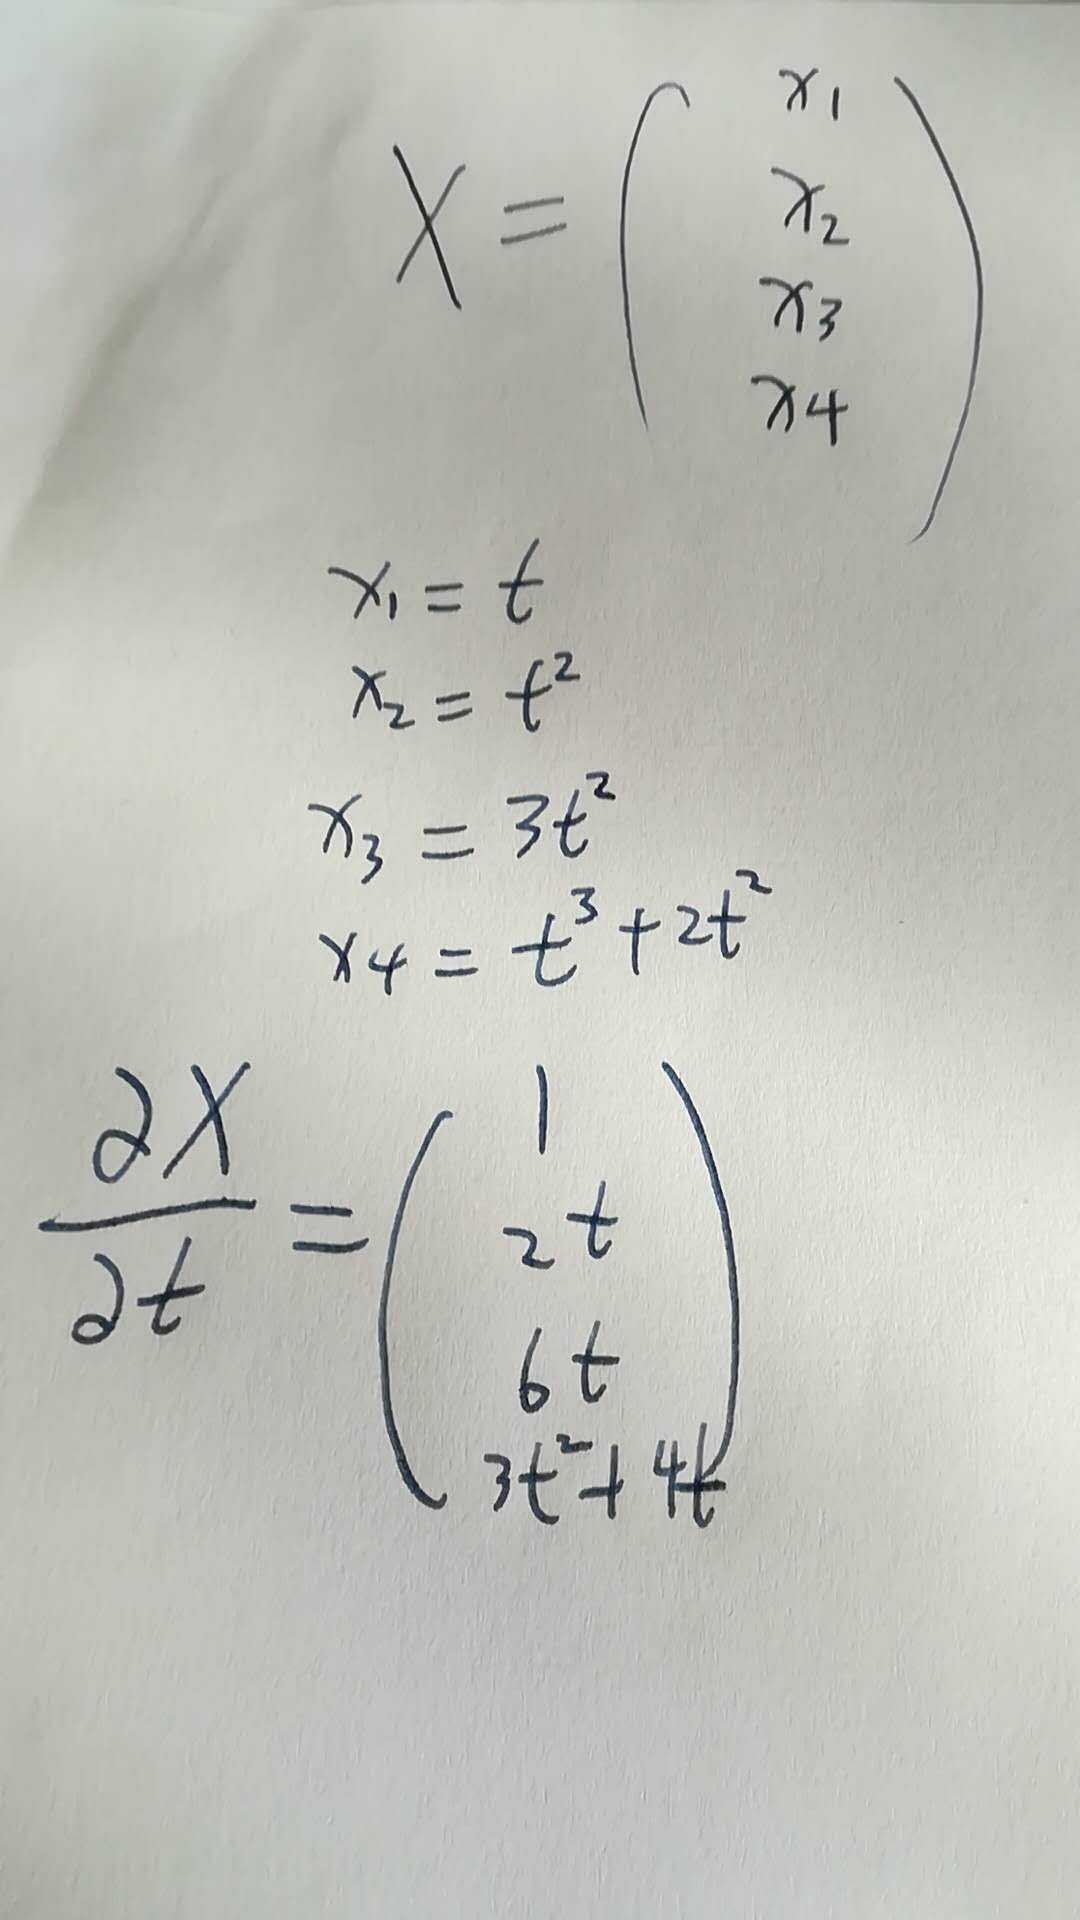 X = ( x₁
x₂
x₃
x₄ )
x₁ = t
x₂ = t²
x₃ = 3t²
x₄ = t³ + 2t²
∂X/∂t = ( 1
2t
6t
3t² + 4t )